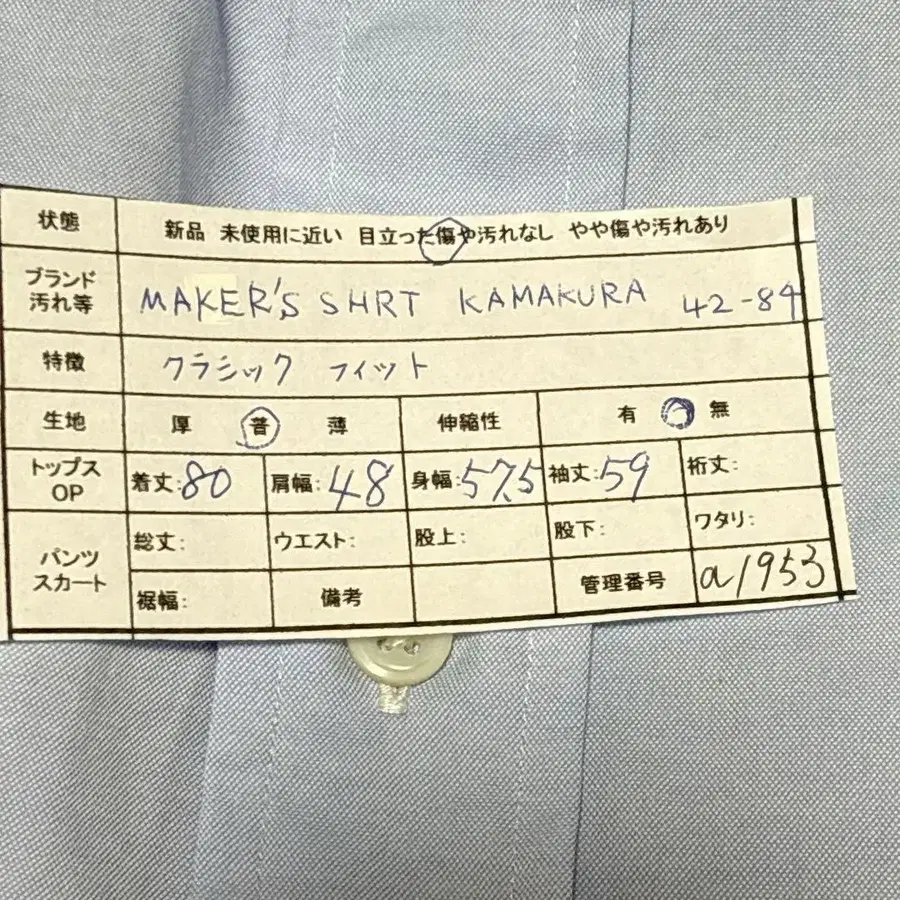 状態 新品 未使用に近い 目立った傷や汚れなし やや傷や汚れあり
ブランド
汚れ等 MAKER'S SHRT KAMAKURA 42-84
特徴 クラシック フィット
生地 厚 普 薄 伸縮性 有 無
トップス
OP 着丈:80 肩幅:48 身幅:57.5 袖丈:59 裄丈:
パンツ
スカート 総丈: ウエスト: 股上: 股下: ワタリ:
裾幅: 備考 管理番号 a1953